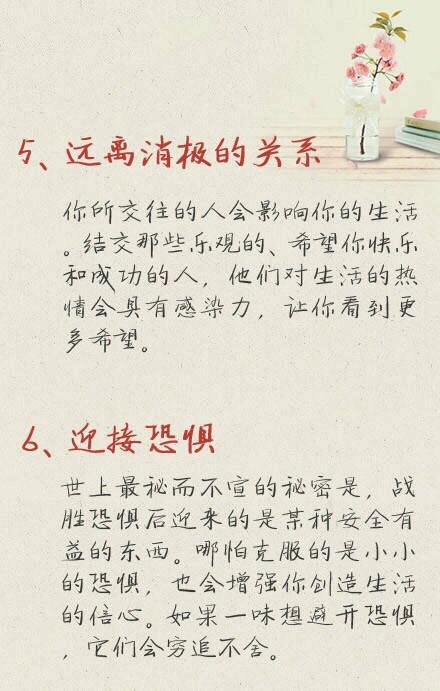 5、远离消极的关系
你所交往的人会影响你的生活
。结交那些乐观的、希望你快乐
和成功的人，他们对生活的热
情会具有感染力，让你看到更
多希望。
6、迎接恐惧
世上最秘而不宣的秘密是，战
胜恐惧后迎来的是某种安全有
益的东西。哪怕克服的是小小
的恐惧，也会增强你创造生活
的信心。如果一味想避开恐惧
，它们会穷追不舍。